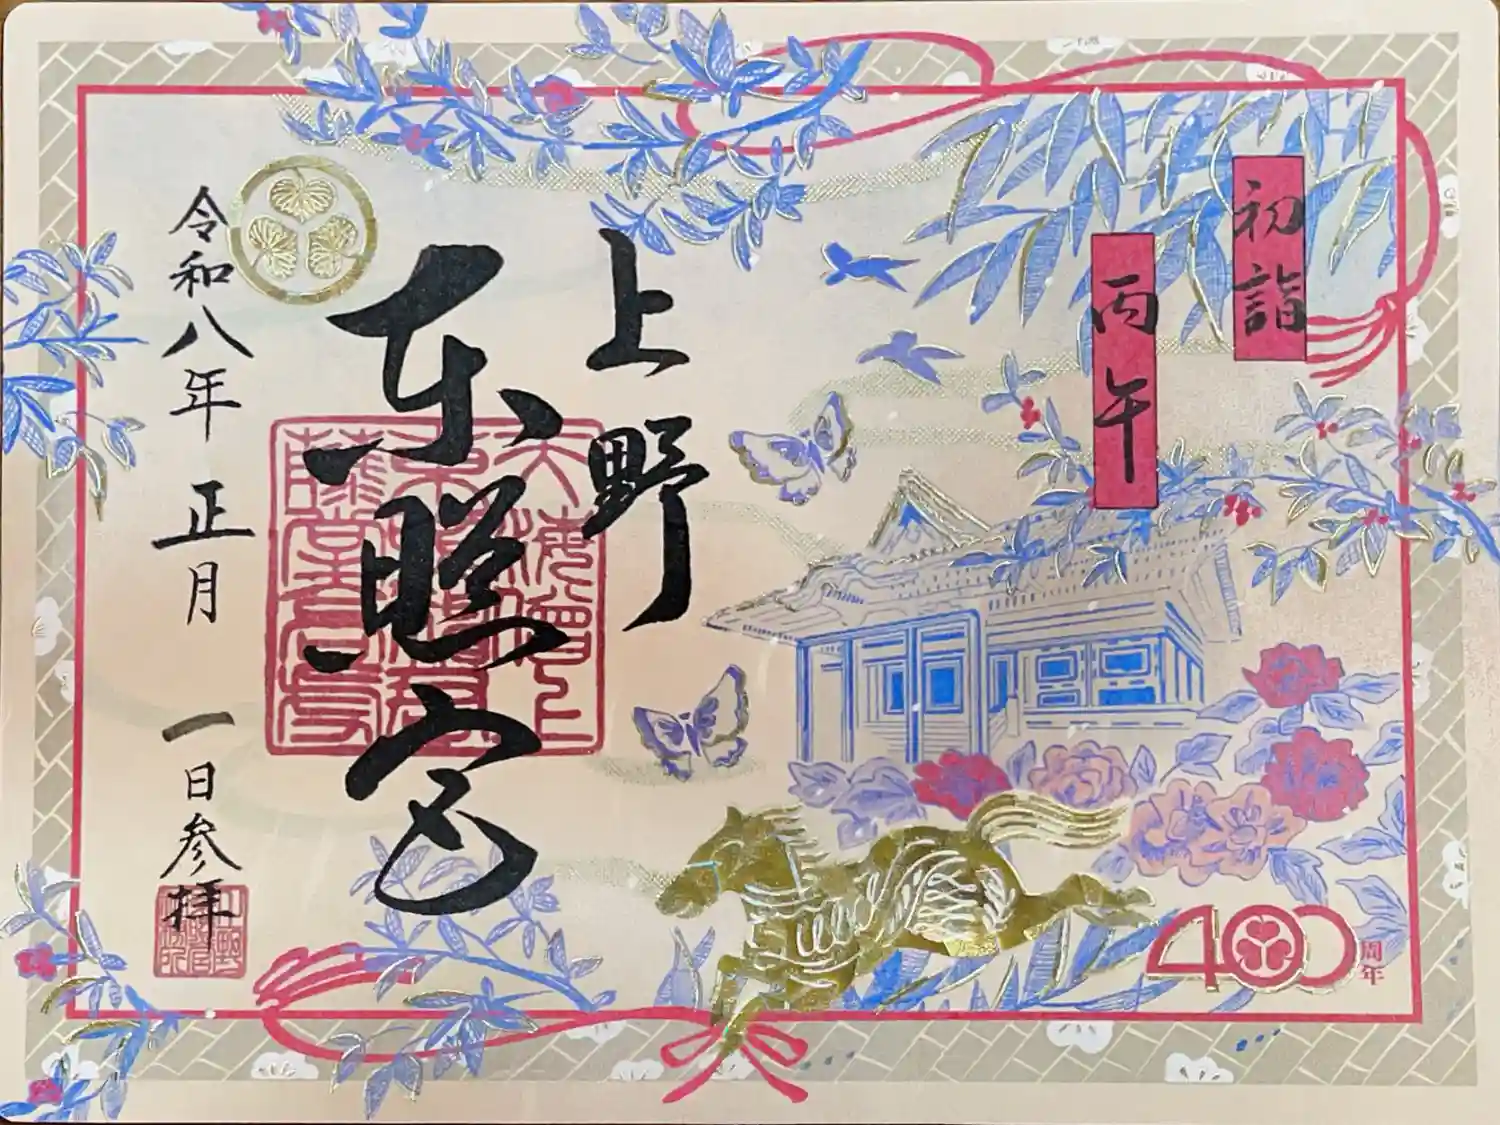 初詣
丙午
上野
東照宮
令和八年正月一日参拝
400周年